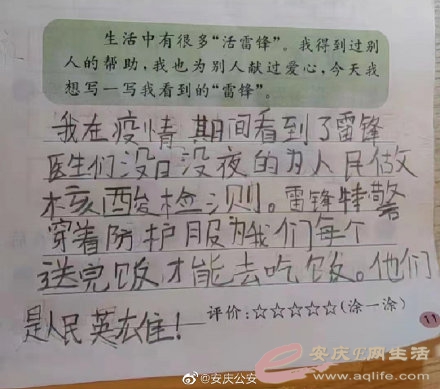 生活中有很多“活雷锋”。我得到过别
人的帮助，我也为别人献过爱心，今天我
想写一写我看到的“雷锋”。
我在疫情期间看到了雷锋
医生们没日没夜的为人民做
核酸检测。雷锋特警
穿着防护服为我们每个
送完饭才能去吃饭。他们
是人民英雄！
评价：☆☆☆☆☆(涂一涂)
11
安庆E网生活
www.aqlife.com
@安庆公安